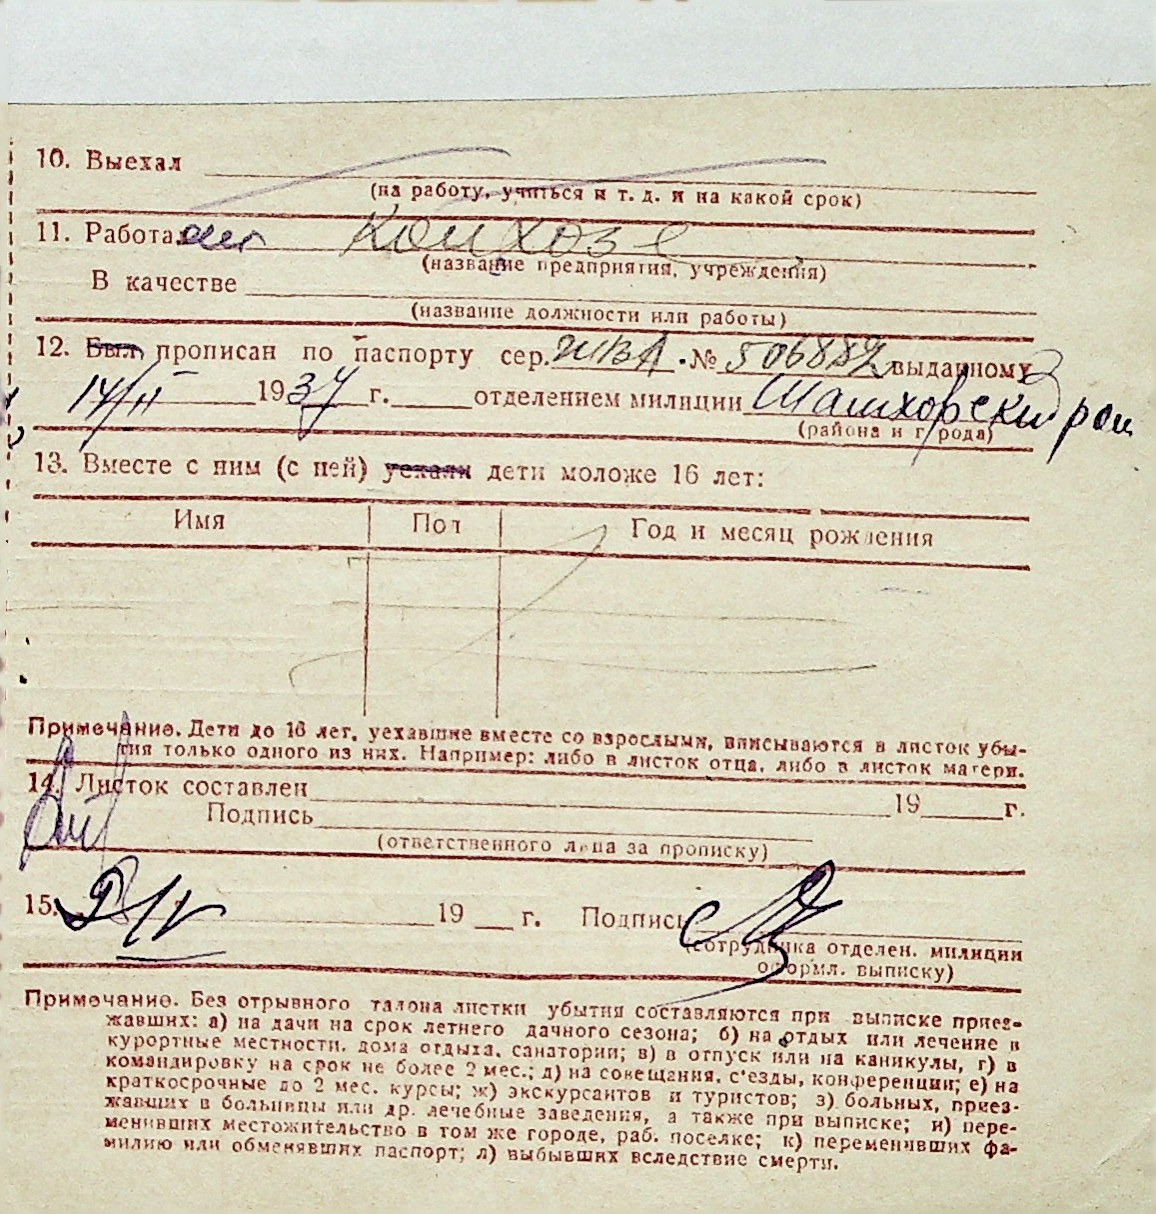 10. Выехал
(на работу, учиться и т. д. и на какой срок)
11. Работает Колхозе
(название предприятия, учреждения)
В качестве
(название должности или работы)
12. Был прописан по паспорту сер. № 506882 выданному
14/II 1937 г. отделением милиции
(района и города)
13. Вместе с ним (с ней) уехали дети моложе 16 лет:
Имя Пол Год и месяц рождения
Примечание. Дети до 16 лет, уехавшие вместе со взрослыми, вписываются в листок убы-
тия только одного из них. Например: либо в листок отца, либо в листок матери.
14. Листок составлен 19 г.
Подпись
(ответственного лица за прописку)
15. 19 г. Подпись
(сотрудника отделен. милиции
оформл. выписку)
Примечание. Без отрывного талона листки убытия составляются при выписке приез-
жавших: а) на дачи на срок летнего дачного сезона; б) на отдых или лечение в
курортные местности, дома отдыха, санатории; в) в отпуск или на каникулы, г) в
командировку на срок не более 2 мес.; д) на совещания, с'езды, конференции; е) на
краткосрочные до 2 мес. курсы; ж) экскурсантов и туристов; з) больных, приез-
жавших в больницы или др. лечебные заведения, а также при выписке; и) пере-
менивших местожительство в том же городе, раб. поселке; к) переменивших фа-
милию или обменявших паспорт; л) выбывших вследствие смерти.